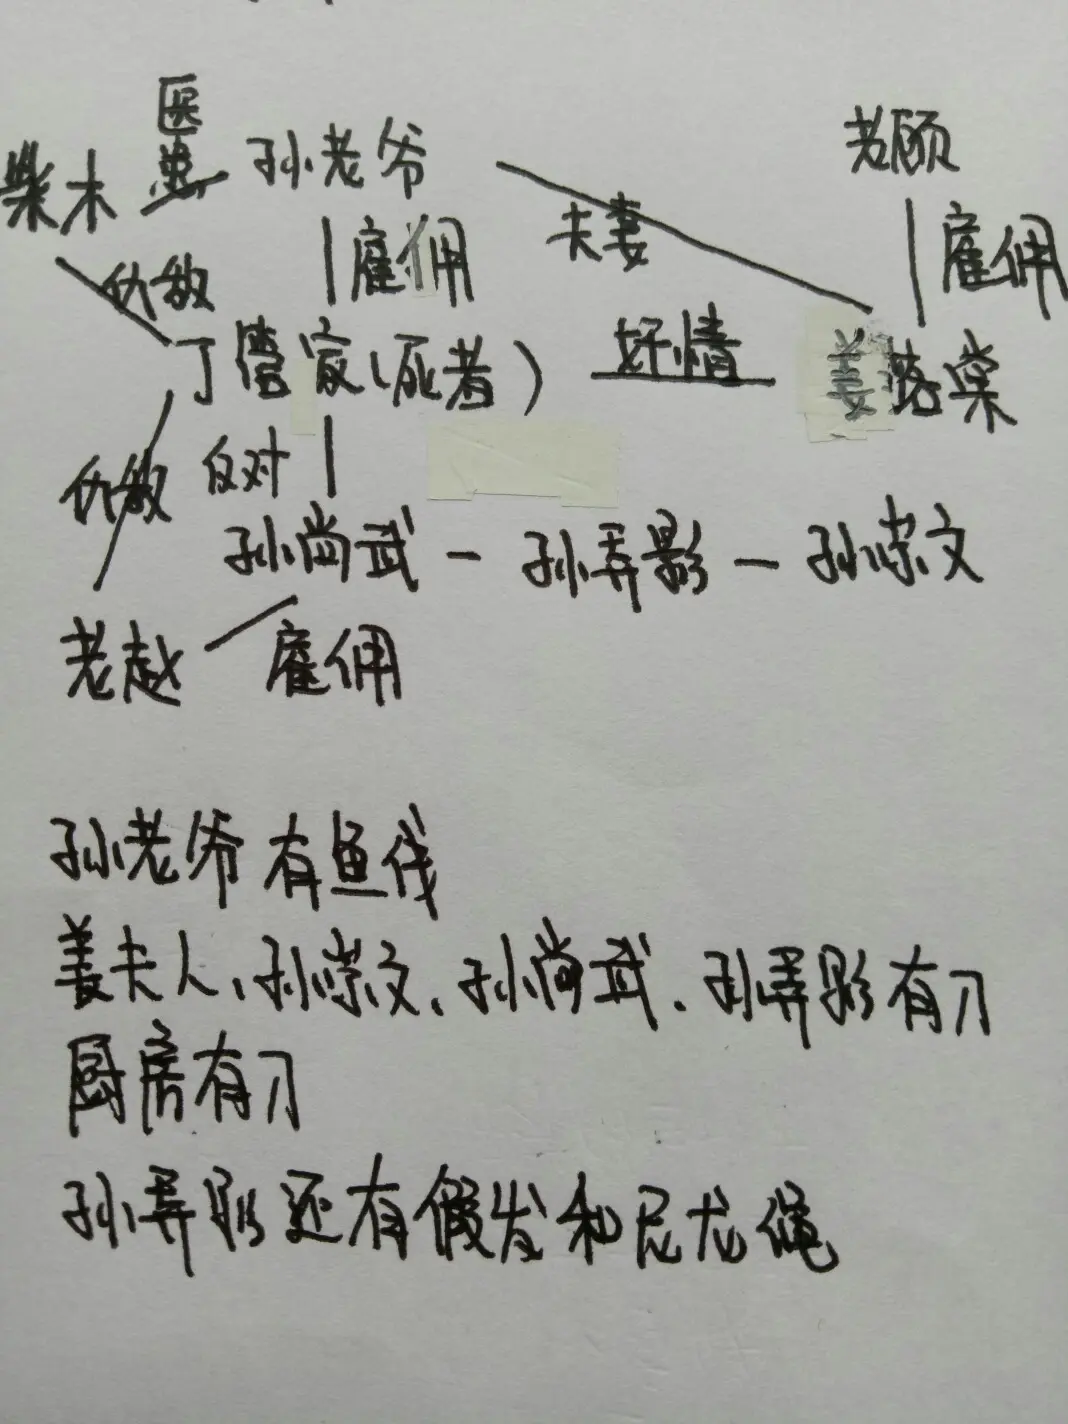 医
患
柴木 孙老爷 老顾
夫妻
仇敌 雇佣 雇佣
丁管家(死者) 奸情 姜棠
仇敌 反对
孙尚武 - 孙弄影 - 孙崇文
老赵 雇佣
孙老爷有鱼线
姜夫人、孙崇文、孙尚武、孙弄影有刀
厨房有刀
孙弄影还有假发和尼龙绳